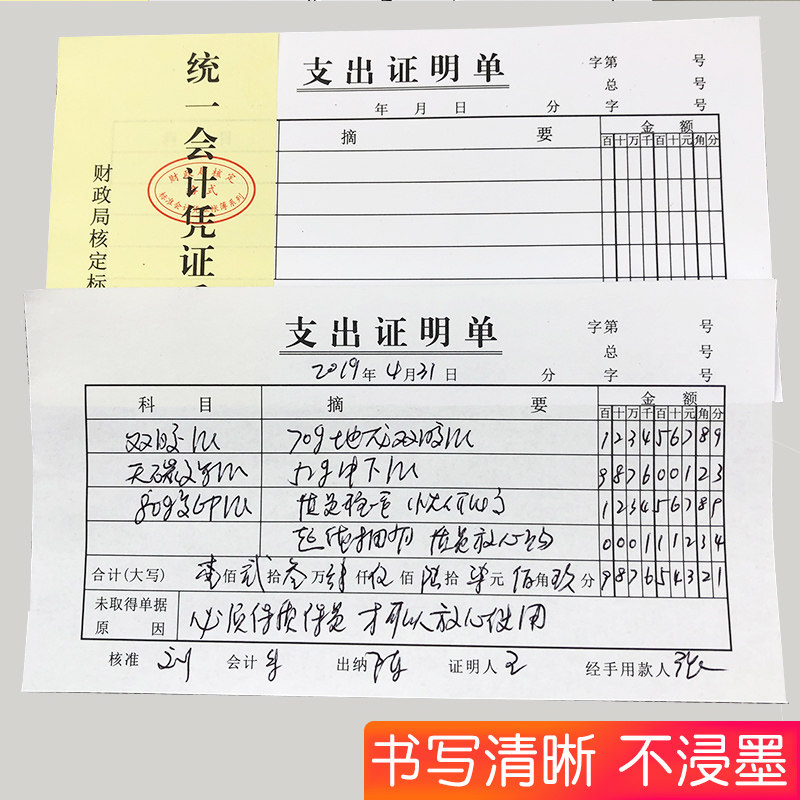 统一会计凭证
财政局核定标
财政局核定
标准会计 账簿系列
支出证明单
字第 号
总 号
年 月 日 分 字 号
摘 要 金 额
百十万千百十元角分
支出证明单
字第 号
总 号
2019年4月31日 分 字 号
科 目 摘 要 金 额
百十万千百十元角分
双胶 70g 双胶 123456789
987600123
80g 123456789
放心 000111234
合计(大写) 佰 贰 拾 叁 万 肆 仟 伍 佰 陆 拾 柒 元 佰 角 玖 分 987654321
未取得单据
原 因 必须保质保量 才可以放心使用
核准 刘 会计 出纳 陈 证明人 王 经手用款人 张
书写清晰 不浸墨